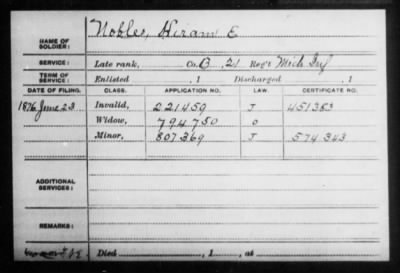 NAME OF SOLDIER: Nobles, Hiram E
SERVICE: Late rank, Co. B, 21 Reg't Mich Inf
TERM OF SERVICE: Enlisted , 1 Discharged , 1
DATE OF FILING. CLASS. APPLICATION NO. LAW. CERTIFICATE NO.
1876 June 23 Invalid, 221459 J 451383
Widow, 794750 O
Minor, 807369 J 574343
ADDITIONAL SERVICES:
REMARKS:
Died , 1 , at